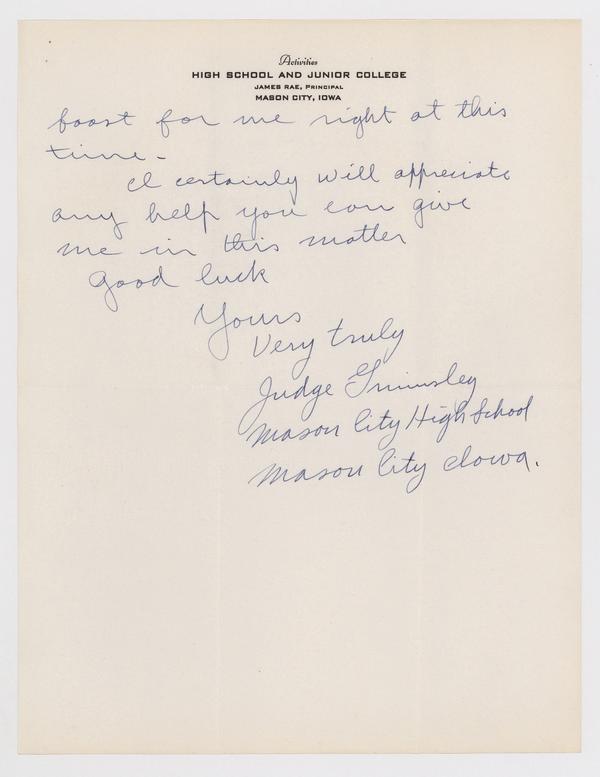 Activities
HIGH SCHOOL AND JUNIOR COLLEGE
JAMES RAE, PRINCIPAL
MASON CITY, IOWA
boost for me right at this
time.
I certainly will appreciate
any help you can give
me in this matter
Good luck
Yours
Very truly
Judge Grimsley
Mason City High School
Mason City Iowa.